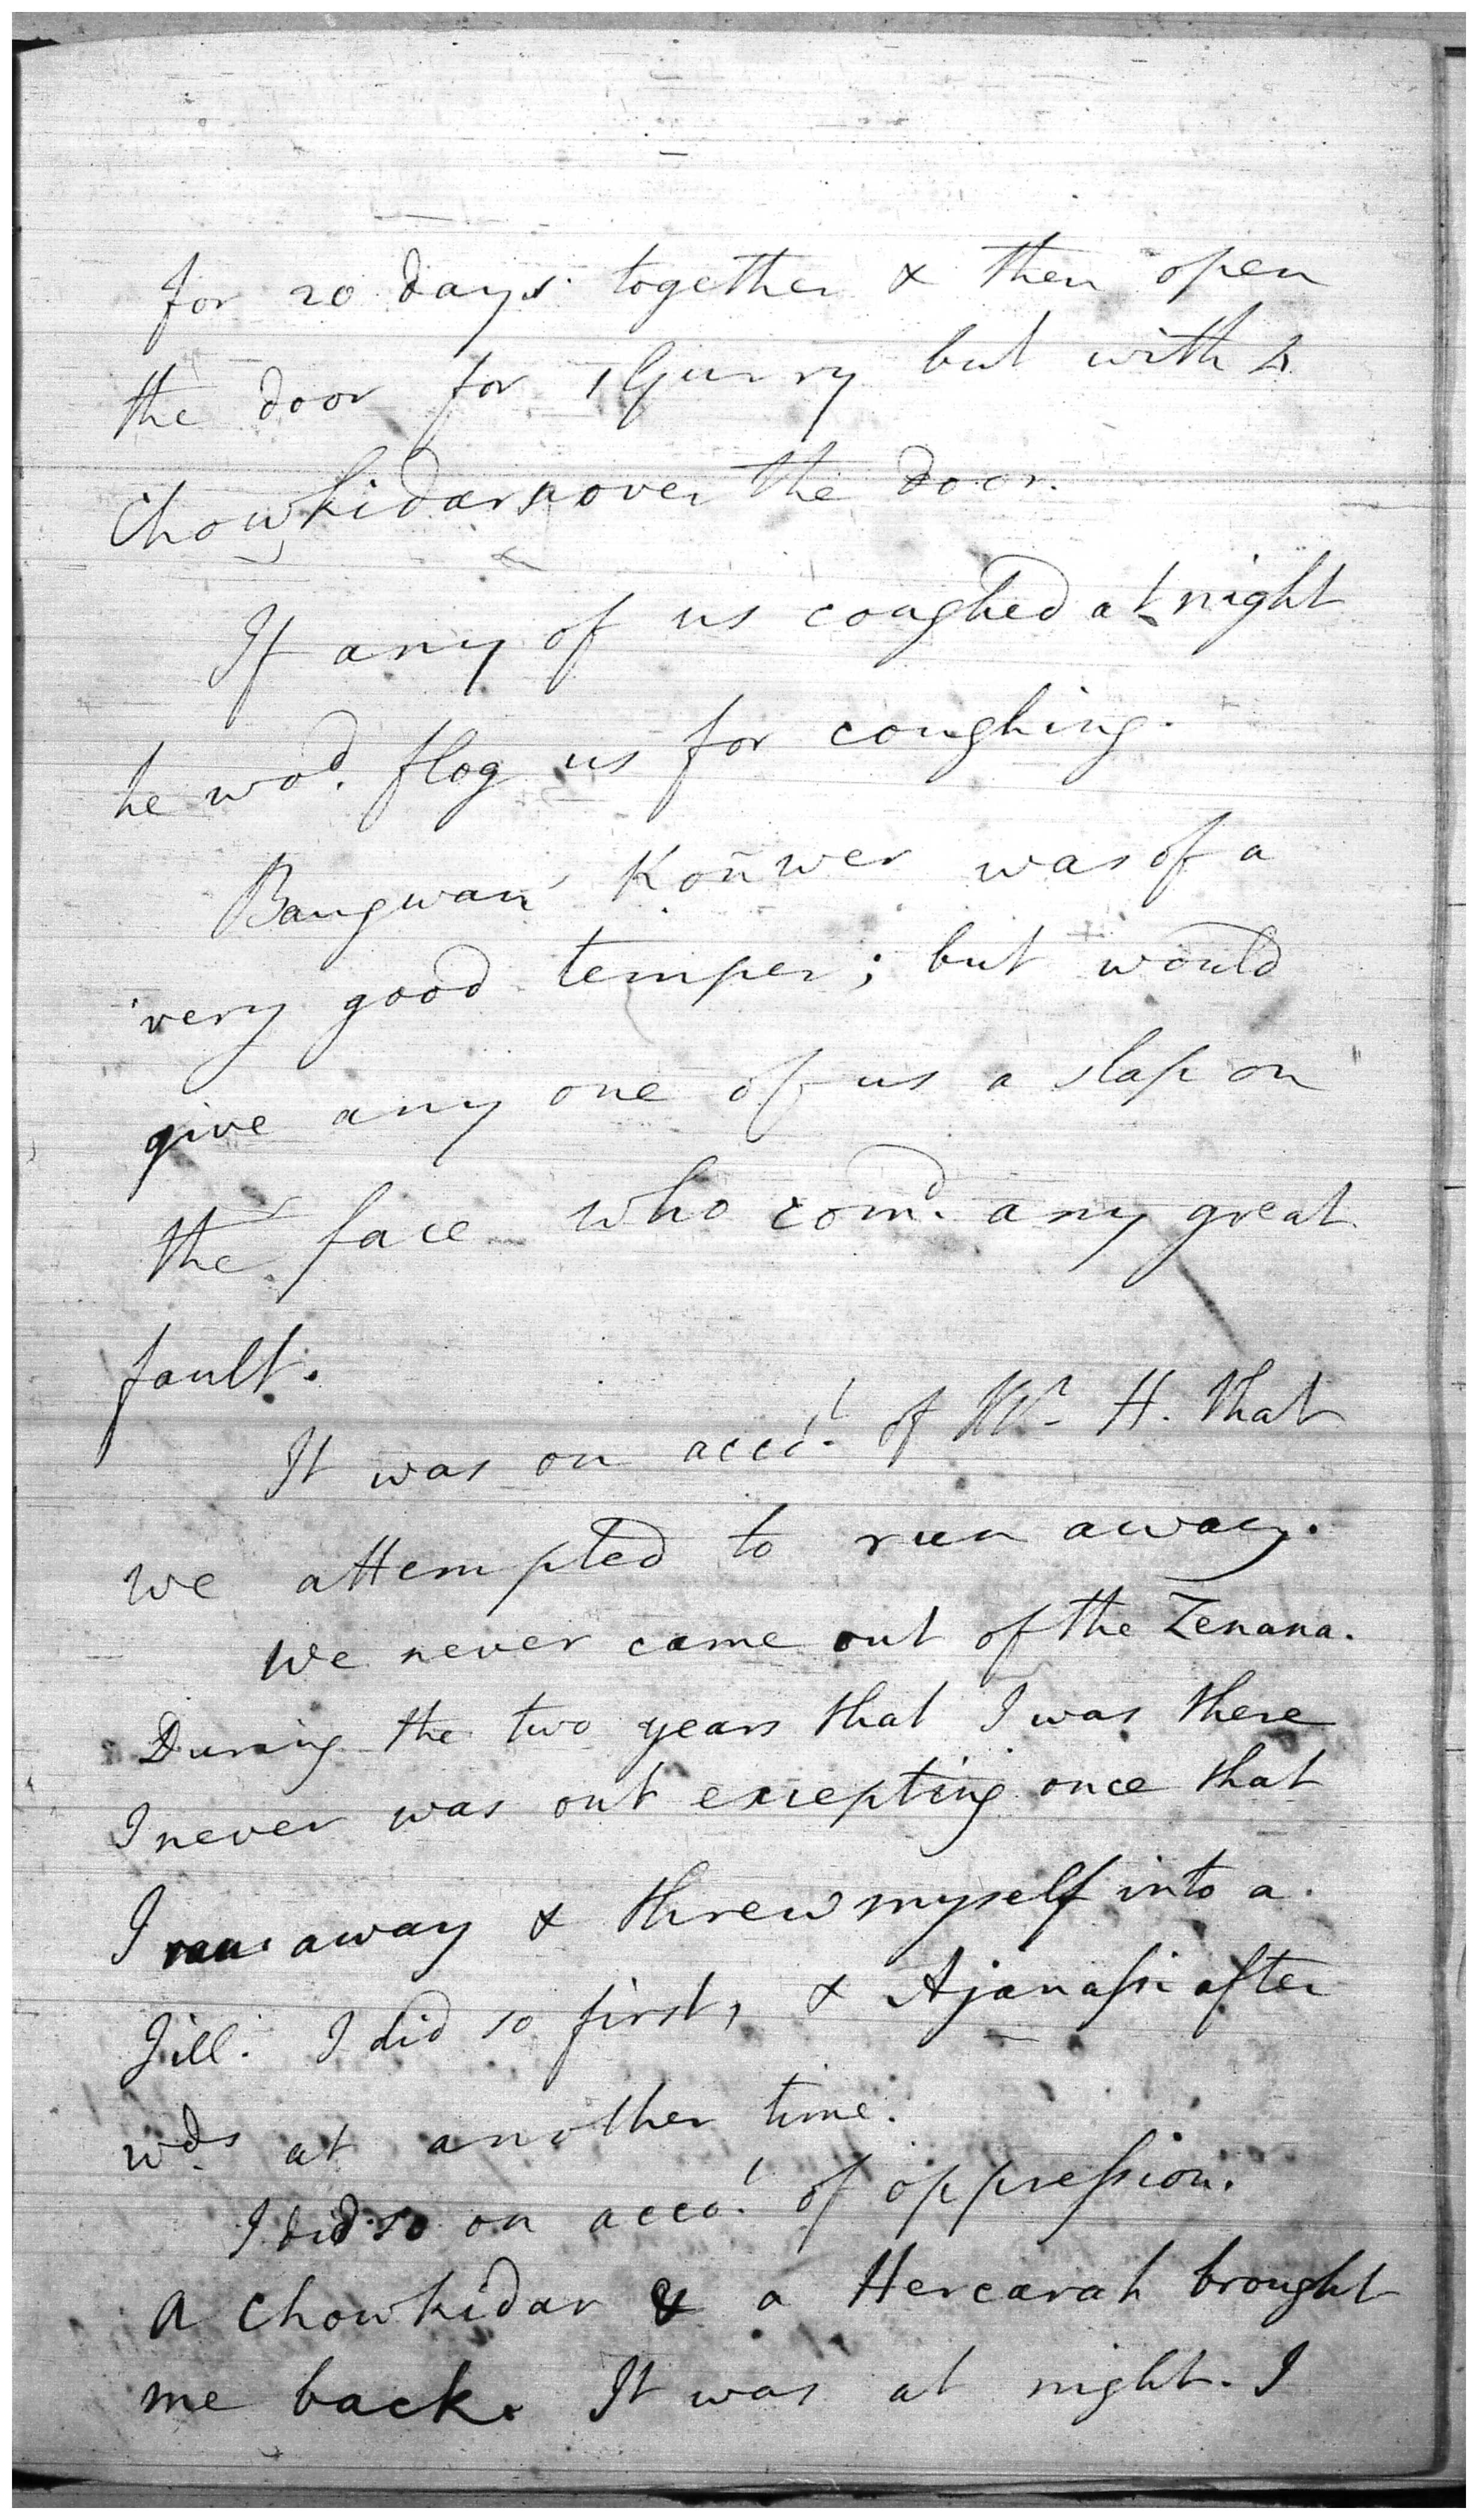 for 20 days together & then open
the door for 1 Gurry but with 2
Chowkidars over the door.
If any of us coughed at night
he wod. flog us for coughing.
Bangwan Konwer was of a
very good temper; but would
give any one of us a slap on
the face who comd. any great
fault.
It was on accot. of Mr. H. that
we attempted to run away.
We never came out of the Zenana.
During the two years that I was there
I never was out excepting once that
I ran away & threw myself into a
Jill. I did so first, & Ajanassi after
wds. at another time.
I did so on accot. of oppression.
A Chowkidar & a Hercarah brought
me back. It was at night. I